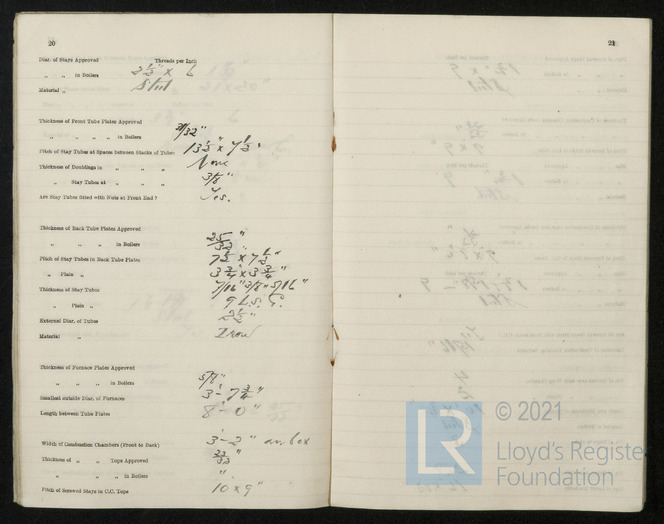 20
Diar. of Stays Approved Threads per Inch
„ „ in Boilers 2½" × 6
Material „ Steel
Thickness of Front Tube Plates Approved
„ „ „ „ in Boilers /32"
Pitch of Stay Tubes at Spaces between Stacks of Tubes 13½" × 7½"
Thickness of Doublings in „ „ „ None
„ Stay Tubes at „ „ „ 3/8"
Are Stay Tubes fitted with Nuts at Front End? Yes.
Thickness of Back Tube Plates Approved
„ „ „ in Boilers 25/32"
Pitch of Stay Tubes in Back Tube Plates 7½ × 7½"
„ Plain „ 3¾" × 3¾"
Thickness of Stay Tubes 7/16" 3/8" 5/16"
„ Plain „ 9 L.S.G.
External Diar. of Tubes 2½"
Material „ Iron
Thickness of Furnace Plates Approved
„ „ „ in Boilers 5/8"
Smallest outside Diar. of Furnaces 3'- 7¾"
Length between Tube Plates 8'- 0"
Width of Combustion Chambers (Front to Back) 3'- 2"
Thickness of „ „ Tops Approved
„ „ „ in Boilers "
Pitch of Screwed Stays in C.C. Tops 10 × 9"
21
© 2021
LR
Lloyd's Registe
Foundation